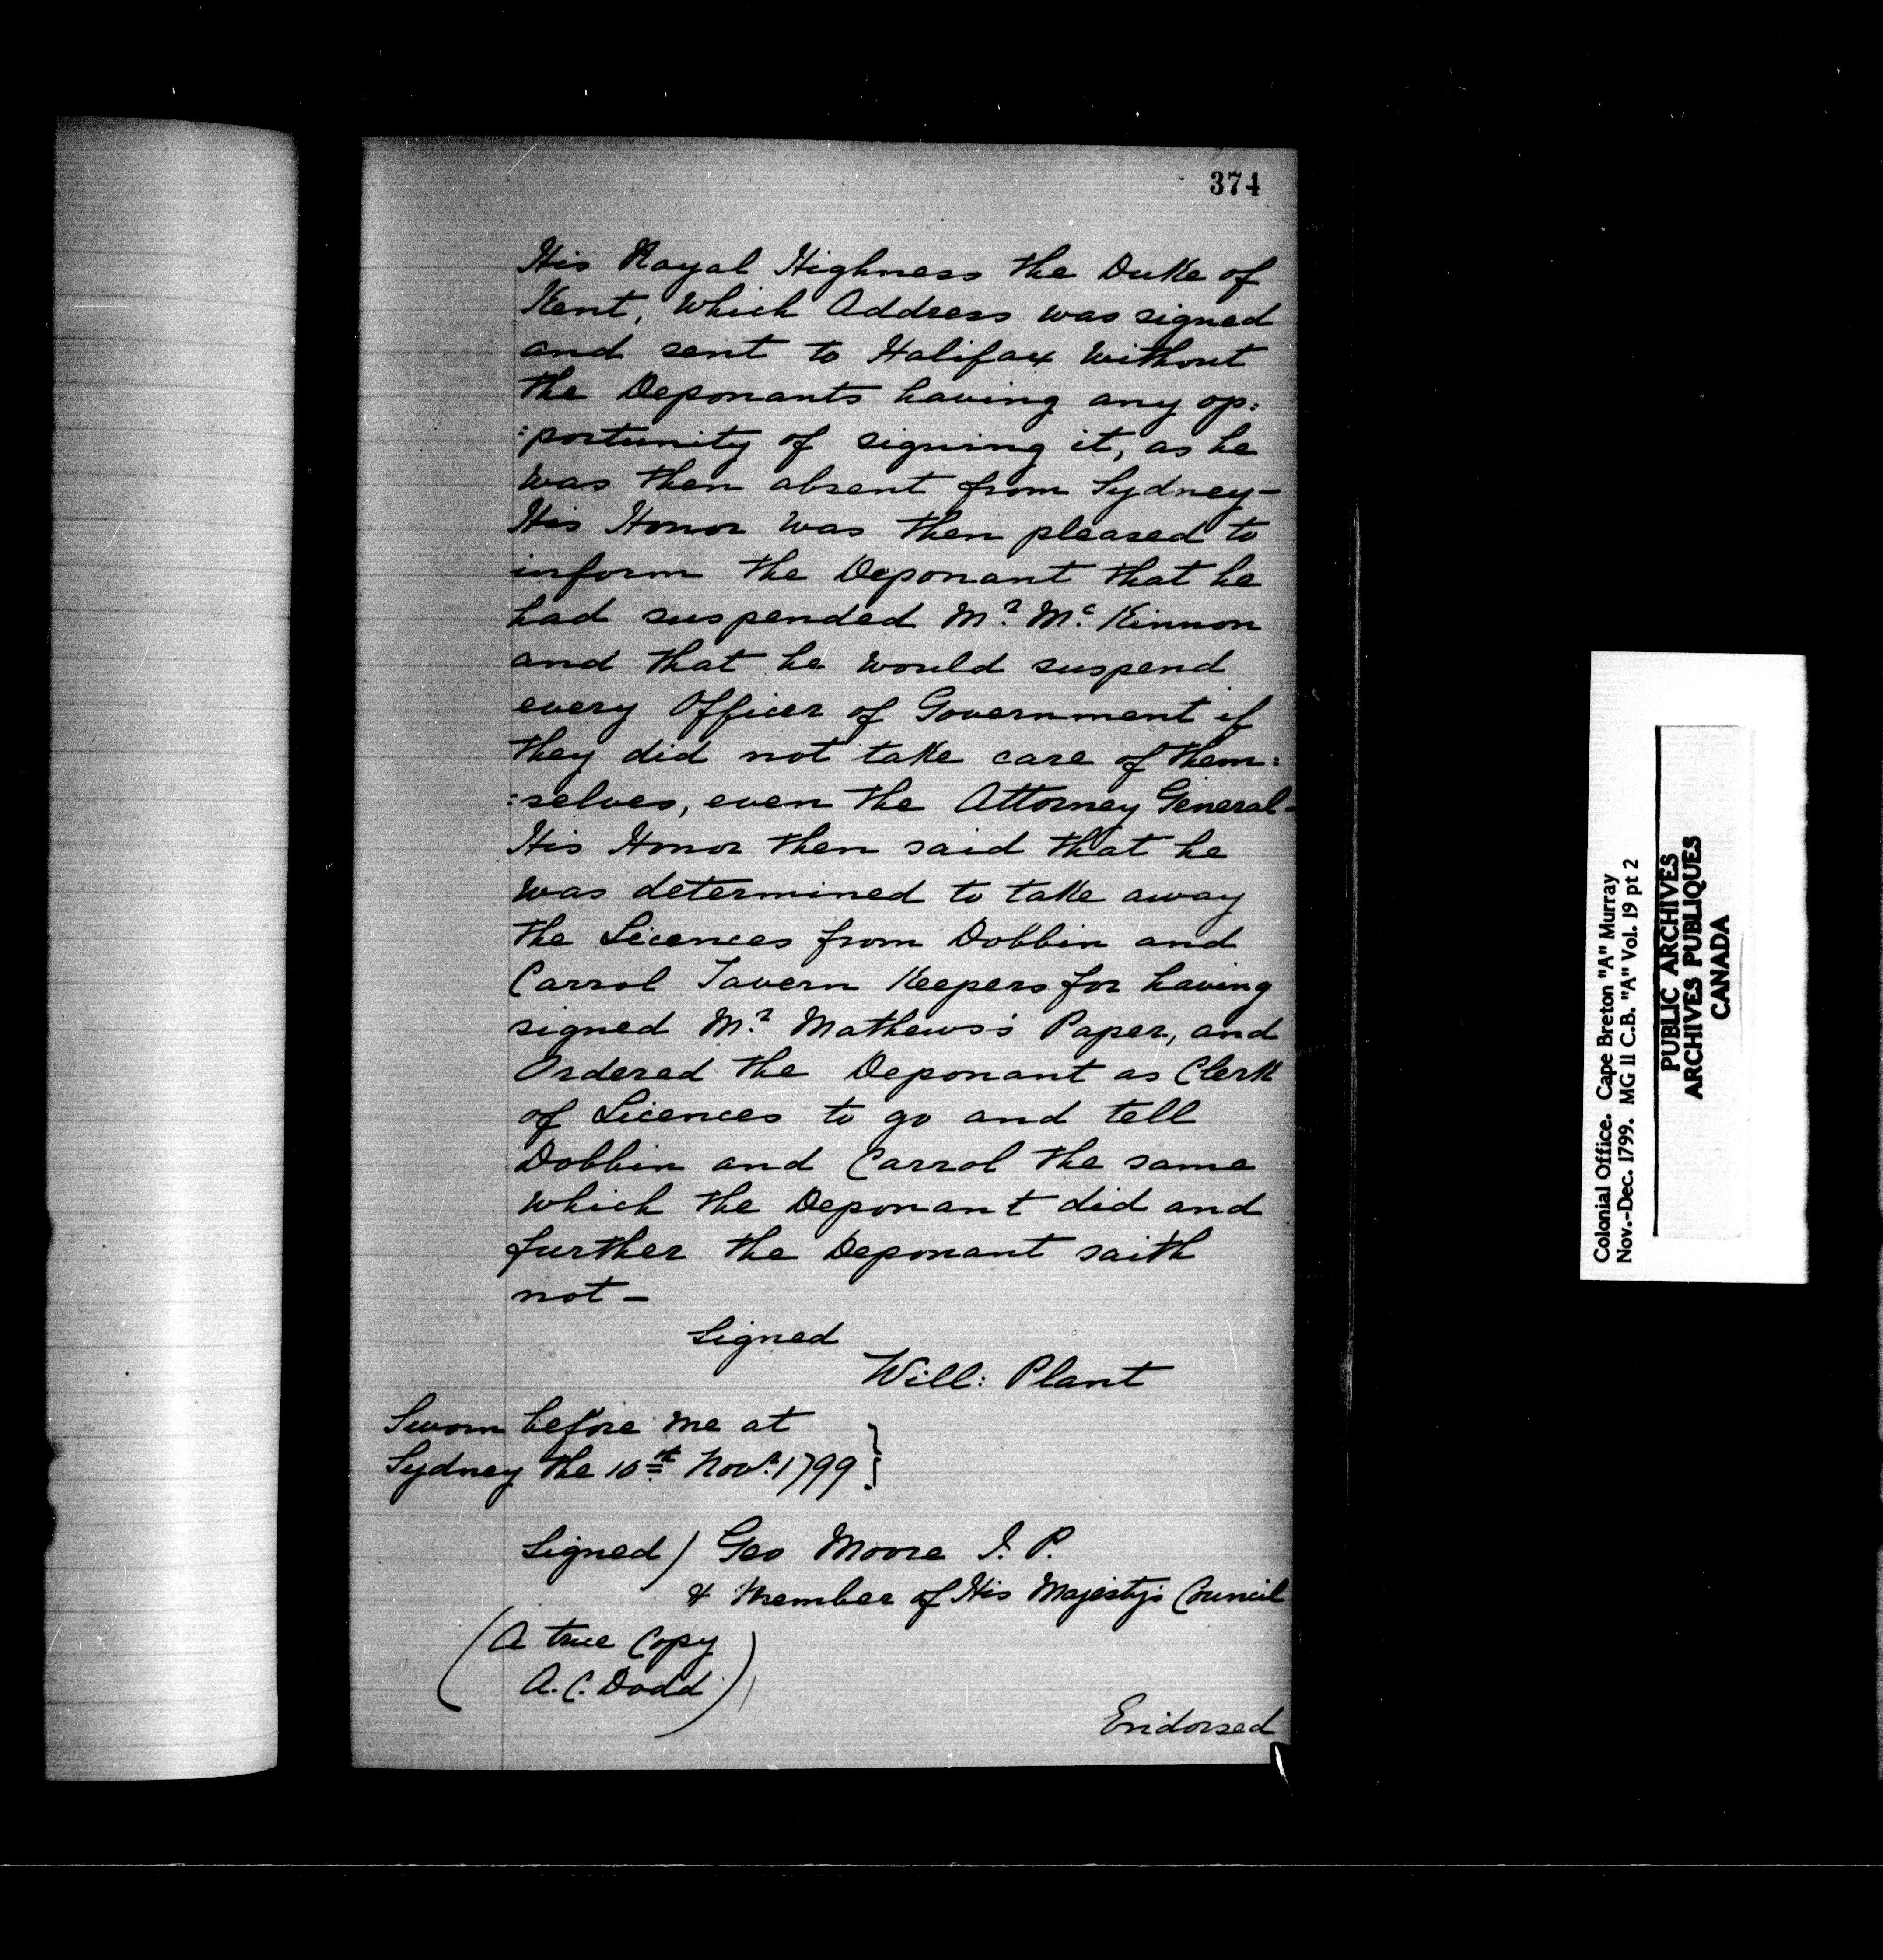 374
His Royal Highness the Duke of
Kent, which Address was signed
and sent to Halifax without
the Deponants having any op:
:portunity of signing it, as he
was then absent from Sydney-
His Honor was then pleased to
inform the Deponant that he
had suspended Mr. Mc. Kinnon
and that he would suspend
every Officer of Government if
they did not take care of them:
:selves, even the Attorney General-
His Honor then said that he
was determined to take away
the Licences from Dobbin and
Carrol Tavern Keepers for having
signed Mr. Mathews's Paper, and
Ordered the Deponant as Clerk
of Licences to go and tell
Dobbin and Carrol the same
which the Deponant did and
further the Deponant saith
not-
Signed
Will: Plant
Sworn before me at
Sydney the 10th Novr. 1799
Signed) Geo Moore J. P.
& Member of His Majesty's Council
(A true Copy
A. C. Dodd)
Endorsed
Colonial Office. Cape Breton "A" Murray
Nov.-Dec. 1799. MG 11 C.B. "A" Vol. 19 pt 2
PUBLIC ARCHIVES
ARCHIVES PUBLIQUES
CANADA